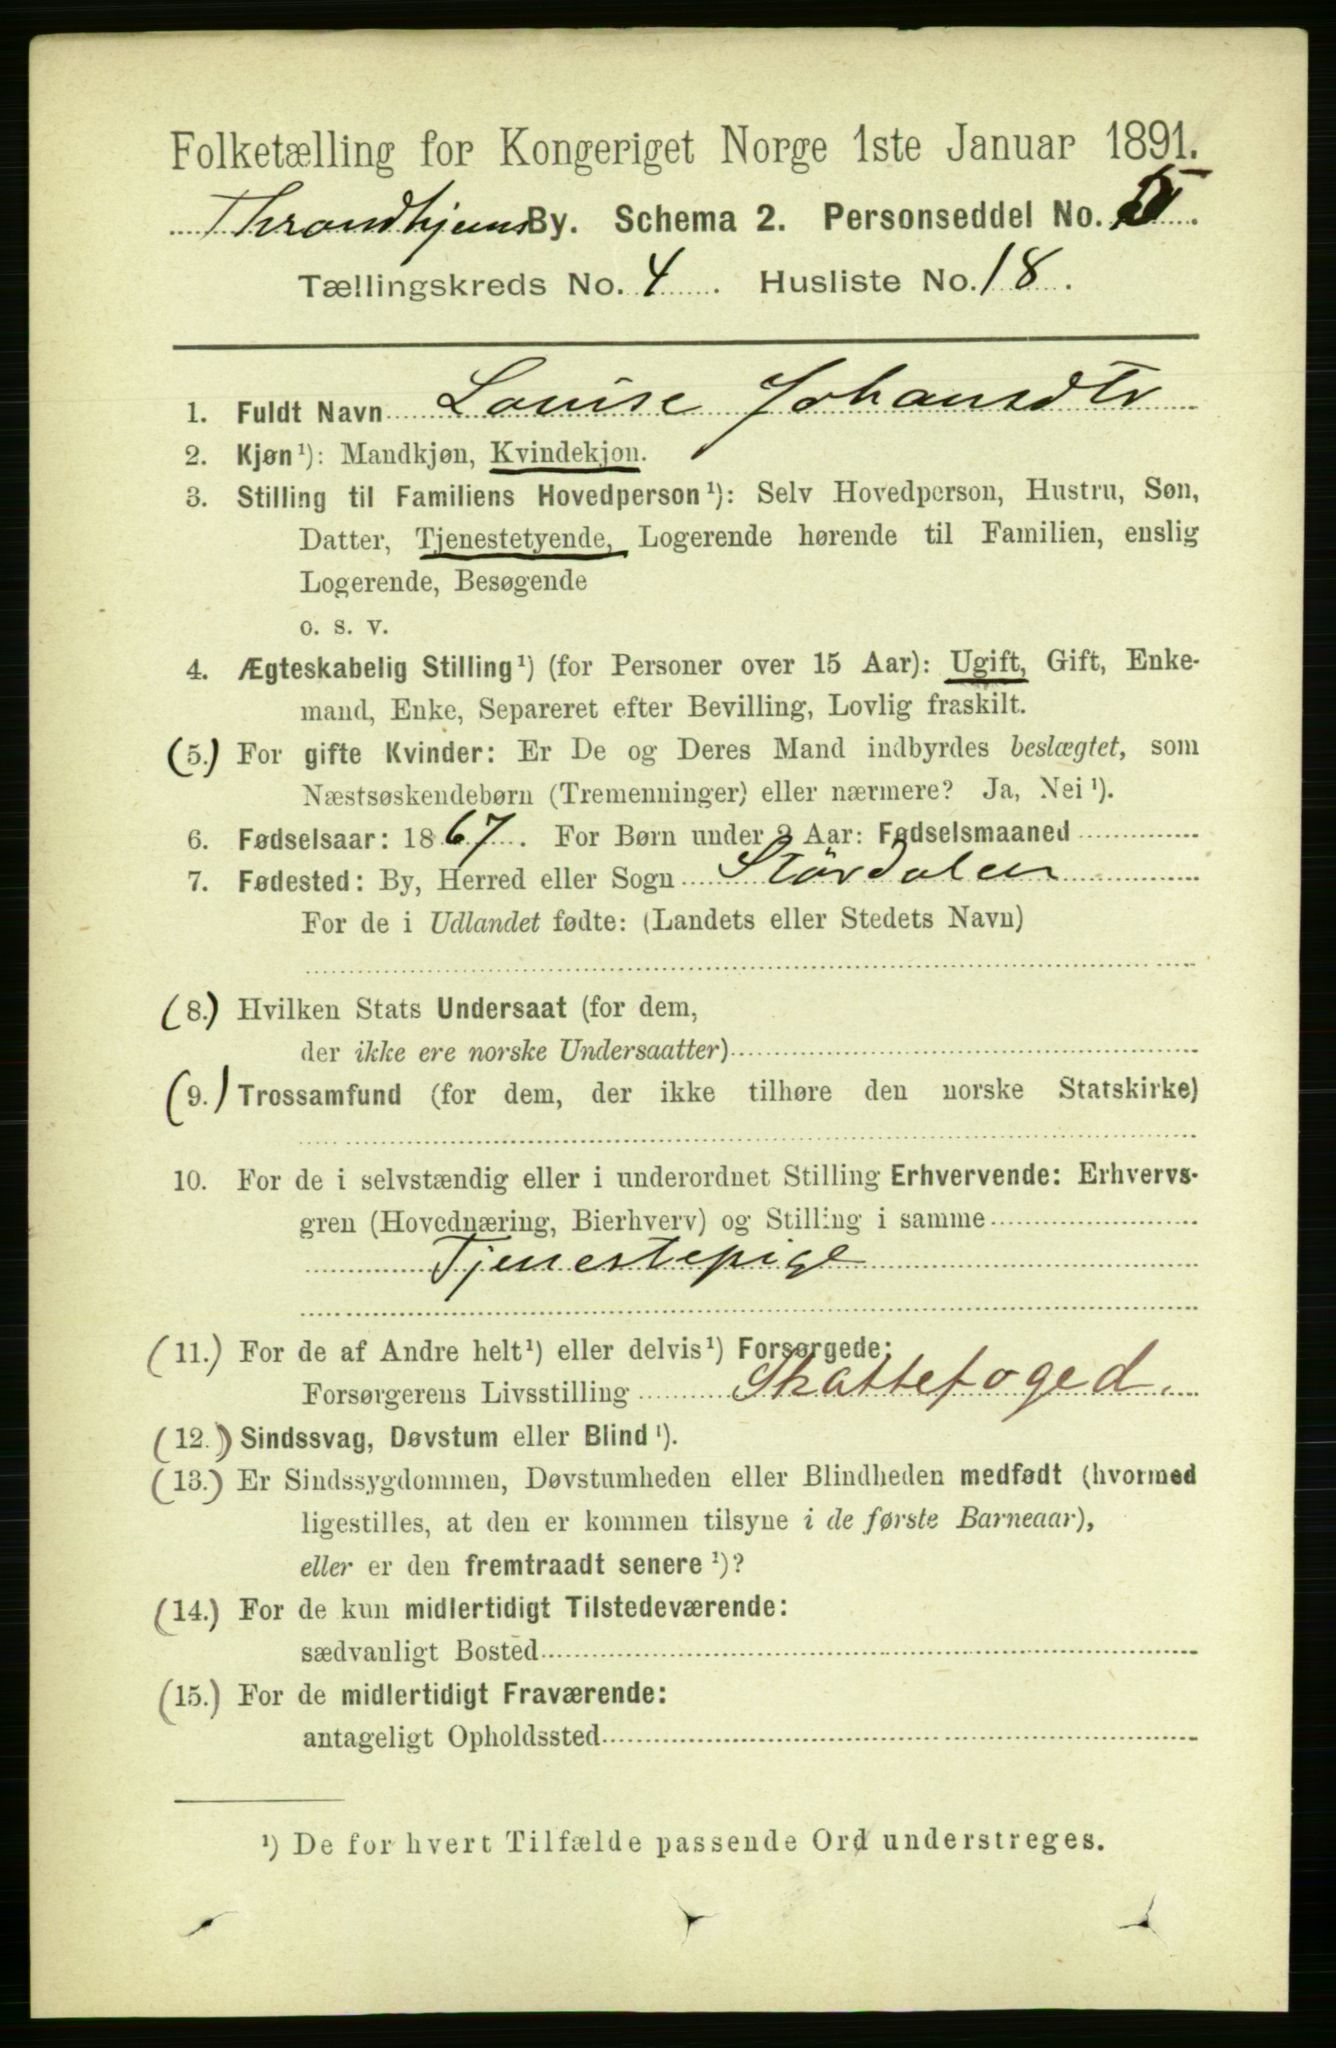 Folketælling for Kongeriget Norge 1ste Januar 1891.
Throndhjems By. Schema 2. Personseddel No.
Tællingskreds No. 4. Husliste No. 18.
1. Fuldt Navn Louise Johansdtr
2. Kjøn¹): Mandkjøn, Kvindekjøn.
3. Stilling til Familiens Hovedperson¹): Selv Hovedperson, Hustru, Søn,
Datter, Tjenestetyende, Logerende hørende til Familien, enslig
Logerende, Besøgende
o. s. v.
4. Ægteskabelig Stilling¹) (for Personer over 15 Aar): Ugift, Gift, Enke-
mand, Enke, Separeret efter Bevilling, Lovlig fraskilt.
(5.) For gifte Kvinder: Er De og Deres Mand indbyrdes beslægtet, som
Næstsøskendebørn (Tremenninger) eller nærmere? Ja, Nei¹).
6. Fødselsaar: 1867. For Børn under 2 Aar: Fødselsmaaned
7. Fødested: By, Herred eller Sogn Størdalen
For de i Udlandet fødte: (Landets eller Stedets Navn)
(8.) Hvilken Stats Undersaat (for dem,
der ikke ere norske Undersaatter)
(9.) Trossamfund (for dem, der ikke tilhøre den norske Statskirke)
10. For de i selvstændig eller i underordnet Stilling Erhvervende: Erhvervs-
gren (Hovednæring, Bierhverv) og Stilling i samme
Tjenestepige
(11.) For de af Andre helt¹) eller delvis¹) Forsørgede:
Forsørgerens Livsstilling Skattefoged.
(12.) Sindssvag, Døvstum eller Blind¹).
(13.) Er Sindssygdommen, Døvstumheden eller Blindheden medfødt (hvormed
ligestilles, at den er kommen tilsyne i de første Barneaar),
eller er den fremtraadt senere¹)?
(14.) For de kun midlertidigt Tilstedeværende:
sædvanligt Bosted
(15.) For de midlertidigt Fraværende:
antageligt Opholdssted
¹) De for hvert Tilfælde passende Ord understreges.